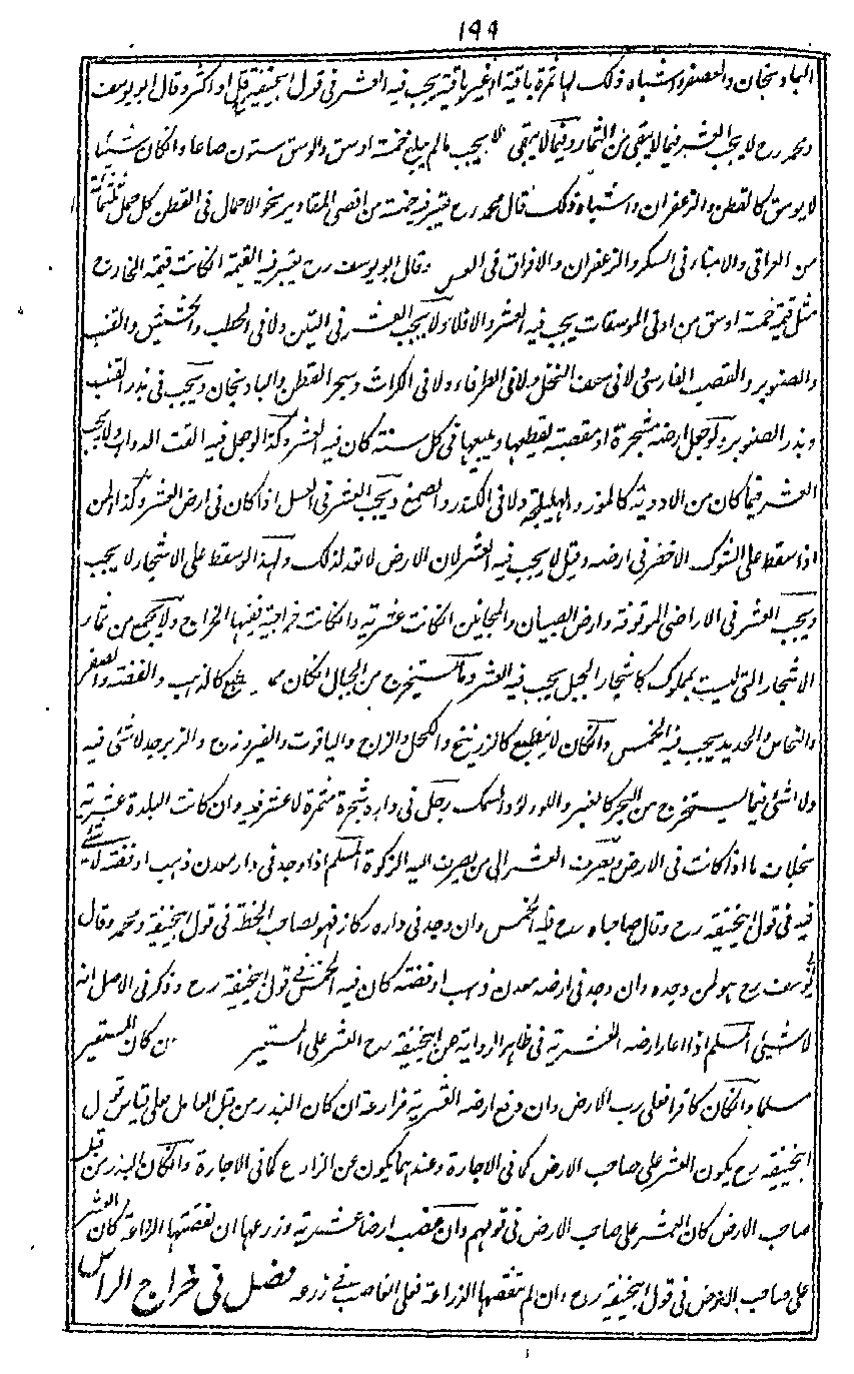 ١٩٩
الباذنجان والعصفر واشباه ذلك لها ثمرة باقية او غير باقية يجب فيه العشر في قول ابيحنيفة قل او اكثر وقال ابو يوسف
ومحمد رح لا يجب العشر فيما لا يبقى من الثمار وفيما لا يبقى لا يجب مالم يبلغ خمسة اوسق والوسق ستون صاعا وانكان شيئا
لا يوسق كالقطن والزعفران واشباه ذلك قال محمد رح يعتبر فيه خمسة من اقصى المقادير نحو الاحمال في القطن كل حمل ثلثمائة
من العراقي والامناء في السكر والزعفران والافراق في العسل وقال ابو يوسف رح يعتبر فيه القيمة انكانت قيمة الخارج
مثل قيمة خمسة اوسق من ادنى الموسقات يجب فيه العشر والا فلا ولا يجب العشر في التبن ولا في الحطب والحشيش والقنب
والصنوبر والقصب الفارسي ولا في سعف النخل ولا في الطرفاء ولا في الكراث وشجر القطن والباذنجان ويجب في بذر القنب
وبذر الصنوبر ولو جعل ارضه مشجرة او مقصبة يقطعها ويبيعها في كل سنة كان فيه العشر وكذا لو جعل فيه القت الدواب ولا يجب
العشر فيما كان من الادوية كالموز والهليلجة ولا في الكندر والصمغ ويجب العشر في العسل اذا كان في ارض العشر وكذا المن
اذا سقط على الشوك الاخضر في ارضه وقيل لا يجب فيه العشر لان الارض لا تعد لذلك ولهذا لو سقط على الاشجار لا يجب
ويجب العشر في الاراضي الموقوفة وارض الصبيان والمجانين انكانت عشرية وانكانت خراجية ففيها الخراج ولا يجمع من ثمار
الاشجار التي ليست بمملوك كاشجار الجبل يجب فيه العشر وما يستخرج من الجبال انكان مما ينطبع كالذهب والفضة والصفر
والنحاس والحديد يجب فيه الخمس وانكان لا ينطبع كالزرنيخ والكحل والزاج والياقوت والفيروزج والزبرجد لا شئ فيه
ولا شئ فيما يستخرج من البحر كالعنبر واللؤلؤ والسمك رجل في داره شجرة مثمرة لا عشر فيه وان كانت البلدة عشرية
بخلاف ما اذا كانت في الارض ويصرف العشر الى من يصرف اليه الزكوة المسلم اذا وجد في دار معدن ذهب او فضة لا شئ
فيه في قول ابيحنيفة رح وقال صاحباه رح فيه الخمس وان وجد في داره ركاز فهو لصاحب الخطة في قول ابيحنيفة ومحمد وقال
ابو يوسف رح هو لمن وجده وان وجد في ارضه معدن ذهب او فضة كان فيه الخمس في قول ابيحنيفة رح وذكر في الاصل انه
لا شئ المسلم اذا اعار ارضه العشرية في ظاهر الرواية عن ابيحنيفة رح العشر على المستعير ان كان المستعير
مسلما وانكان كافرا فعلى رب الارض وان دفع ارضه العشرية مزارعة ان كان البذر من قبل العامل فعلى قياس قول
ابيحنيفة رح يكون العشر على صاحب الارض كما في الاجارة وعندهما يكون عن الزارع كما في الاجارة وانكان البذر من قبل
صاحب الارض كان العشر على صاحب الارض في قولهم وان غصب ارضا عشرية وزرعها ان نقصتها الزراعة كان العشر
على صاحب الارض في قول ابيحنيفة رح وان لم تنقصها الزراعة فعلى الغاصب في زرعه فصل في خراج الراس